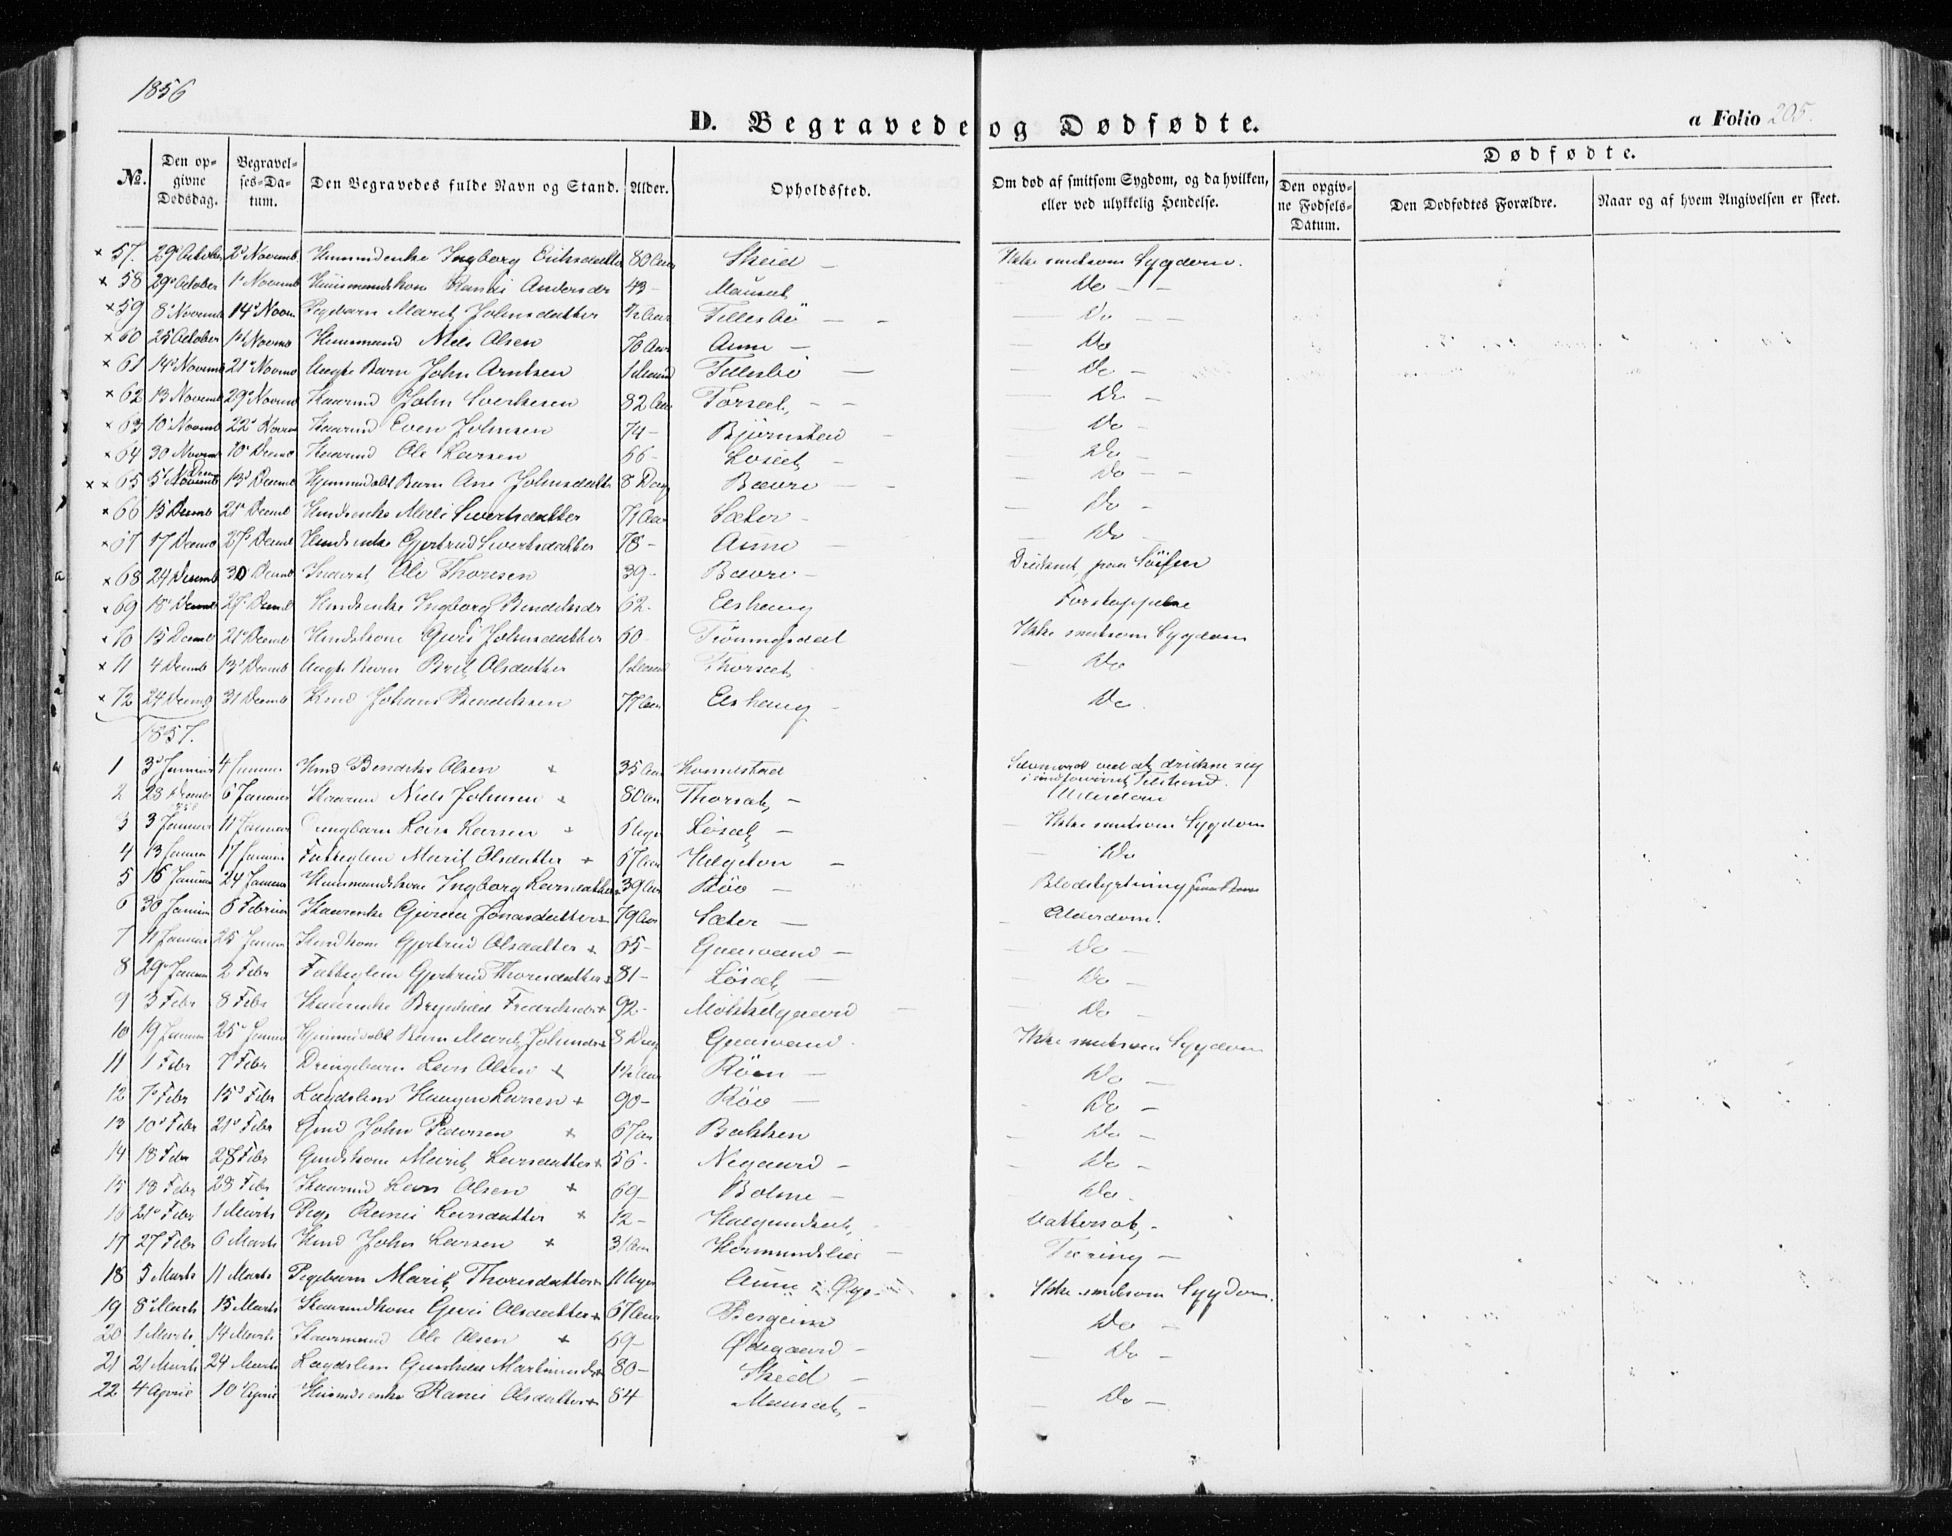 1856
D. Begravede og Dødfødte.
a Folio 205.
№.
Den opgivne Dødsdag.
Begravelses-Datum.
Den Begravedes fulde Navn og Stand.
Alder.
Opholdssted.
Om død af smitsom Sygdom, og da hvilken, eller ved ulykkelig Hendelse.
Dødfødte.
Den opgivne Fødsels-Datum.
Den Dødfødtes Forældre.
Naar og af hvem Angivelsen er skeet.
× 57. 29 October 2 Novemb Ingborg Eriksdatter 80 Aar Skeid — Ikke smitsom Sygdom.
× 58 29 October 1 Novemb Huusmandskone Andersdr 43 - Mauset — Do —
× 59 8 Novemb 14 Novem Pigebarn Marit Johnsdatter Tellesbö — Do —
× 60 25 October Novmb Huusmand Niels Olsen 76 Aar Aune — Do
× 61 14 Novemb 21 Novmb Ægte Barn John Arntsen 1 Maaned Tellesbö — Do —
× 62 13 Novemb 29 Novmb Kaarmd John Sivertsen 82 Aar Torset — Do —
× 63 10 Novmb 22 Novem Kaarmd Even Johnsen 74 - Björnsten — Do —
× 64 30 Novmb 10 Decmb Kaarmd Ole Larsen 66 - Löset — Do —
× × 65 5 Decmb 13 Decmb Hjemmedöbt Barn Ane Johnsdatter 8 Dage Bævre — Do —
× 66 15 Decmb 21 Decmb Mali Sivertsdatter 71 Aar Sæter — Do —
× 67 17 Decmb 27 Decmb Gjertrud Sivertsdatter 78 - Aune — Do —
× 68 24 Decmb 30 Decmb Inderst Ole Thoresen 39 - Bævre — Druknet paa Söen
× 69 18 Decmb 27 Decmb Ingborg Bendiksdr 62 - Elshaug Forstoppelse
× 70 15 Decmb 21 Decmb Guri Johnsdatter 60 - Tröningsdal Ikke smitsom Sygdom
× 71 4 Decmb 13 Decmb Ægte Barn Brit Olsdatter 1 Maaned Thorset — Do
× 72 24 Decmb 31 Decmb Johans Bendiksen 77 Aar Elshaug — Do
1857.
1 3 Januar 4 Januar Hmd Bendik Olsen + 35 Aar Homstad Selvmord ved at drukne sig i sindsforvirret Tilstand.
2 28 Decmb 1856 6 Januar Kaarmd Niels Johnsen + 80 Aar Thorset — Alderdom
3 3 Januar 11 Januar Drengbarn Lars Larsen + 6 Uger Löset — Ikke smitsom Sygdom
4 13 Januar 17 Januar Fattiglem Marit Olsdatter + 67 Aar — Do
5 16 Januar 24 Januar Huusmandskone Ingborg Larsdatter + 39 Aar Röv — Blodstyrtning
6 30 Januar 8 Februar Kaarenke Jonasdatter + 79 Aar Sæter — Alderdom.
7 11 Januar 25 Januar Gjertrud Olsdatter + 65 - Gaasvand — Do —
8 29 Januar 2 Febr Fattiglem Gjertrud Thorsdatter + 81 - Löset — Do —
9 3 Febr 8 Febr Kaarenke Brynhild Fredriksdr + 92 - Mökkelgaard — Do —
10 19 Januar 25 Januar Hjemmedöbt Barn Marit Johnsdr + 8 Dage Gaasvand Ikke smitsom Sygdom
11 1 Febr 7 Febr Drengebarn Lars Olsen + 1½ Aar Röen — Do —
12 7 Febr 15 Febr Lægdslem Haagen Larsen + 90 - Röv — Do —
13 10 Febr 21 Febr Gmd John Pedersen + 67 Aar Bakken — Do —
14 18 Febr 28 Febr Gmdskone Marit Larsdatter + 56 - Negaard — Do —
15 18 Febr 28 Febr Kaarmd Lars Olsen + 69 - Bolme — Do.
16 21 Febr 1 Marts Pige Larsdatter + 12 - Halgundset, Vattersot, -
17 27 Febr 6 Marts Hmd John Larsen + Hermundslie — Tæring —
18 5 Marts 11 Marts Pigebarn Marit Thorsdatter + 11 Uger Aune i Öye Ikke smitsom Sygdom.
19 8 Marts 15 Marts Kaarmdkone Guri Olsdatter + 67 Aar Bergeim Do —
20 1 Marts 14 Marts Kaarmand Ole Olsen + 69 - Ödegaard — Do —
21 21 Marts 24 Marts Lægdslem Gunhild + 80 - Skeid —
22 4 April 10 April Olsdatter + 84 Mauset, — Do —